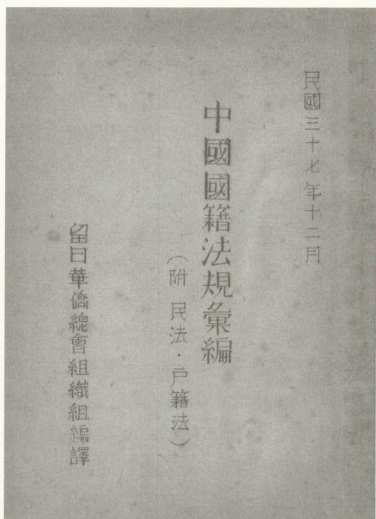 民國三十七年十二月
中國國籍法規彙編
（附 民法・戸籍法）
留日華僑總會組織組編譯